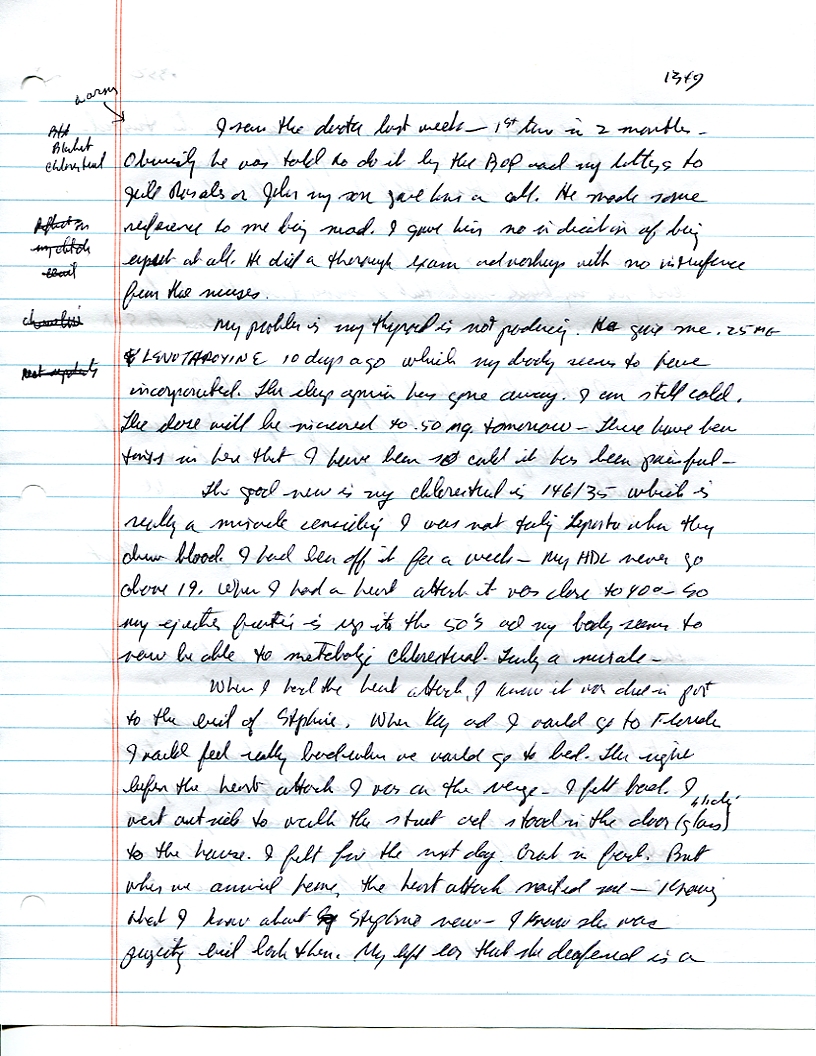 1349
worry
I saw the doctor last week – 1st time in 2 months –
Blanket
Obviously he was told to do it by the BOP and my letters to
Chlorestual
or John my son gave him a call. He made some
reference to me being mad. I gave him no indication of being
upset at all. He did a thorough exam and workup with no interference
from the nurses.
My problem is my thyroid is not producing. He gave me .25 MG
LEVOTHROXINE 10 days ago which my body seems to have
incorporated. The sleep apnia has gone away. I am still cold.
The dose will be increased to .50 mg. tomorrow – There have been
times in here that I have been so cold it has been painful –
The good new is my chlorestual is 146/35 which is
really a miracle considering I was not taking when they
drew blood. I had been off it for a week – My HDL never go
above 19. When I had a heart attack it was close to 400 – So
my ejection fraction is up into the 50's and my body seems to
now be able to metabolize chlorestual. Truly a miracle –
When I had the heart attack, I know it was due in part
to the evil of Stephine. When Kay and I would go to Florida
I would feel really bad when we would go to bed. The night
before the heart attack I was on the verge – I felt bad. I
went outside to walk the street and stood in the door (sliding glass)
to the house. I felt for the next day. in bed. But
when we arrived home, the heart attack nailed me – Knowing
what I know about Stephine now – I know she was
evil back then. My left ear that she deafened is a